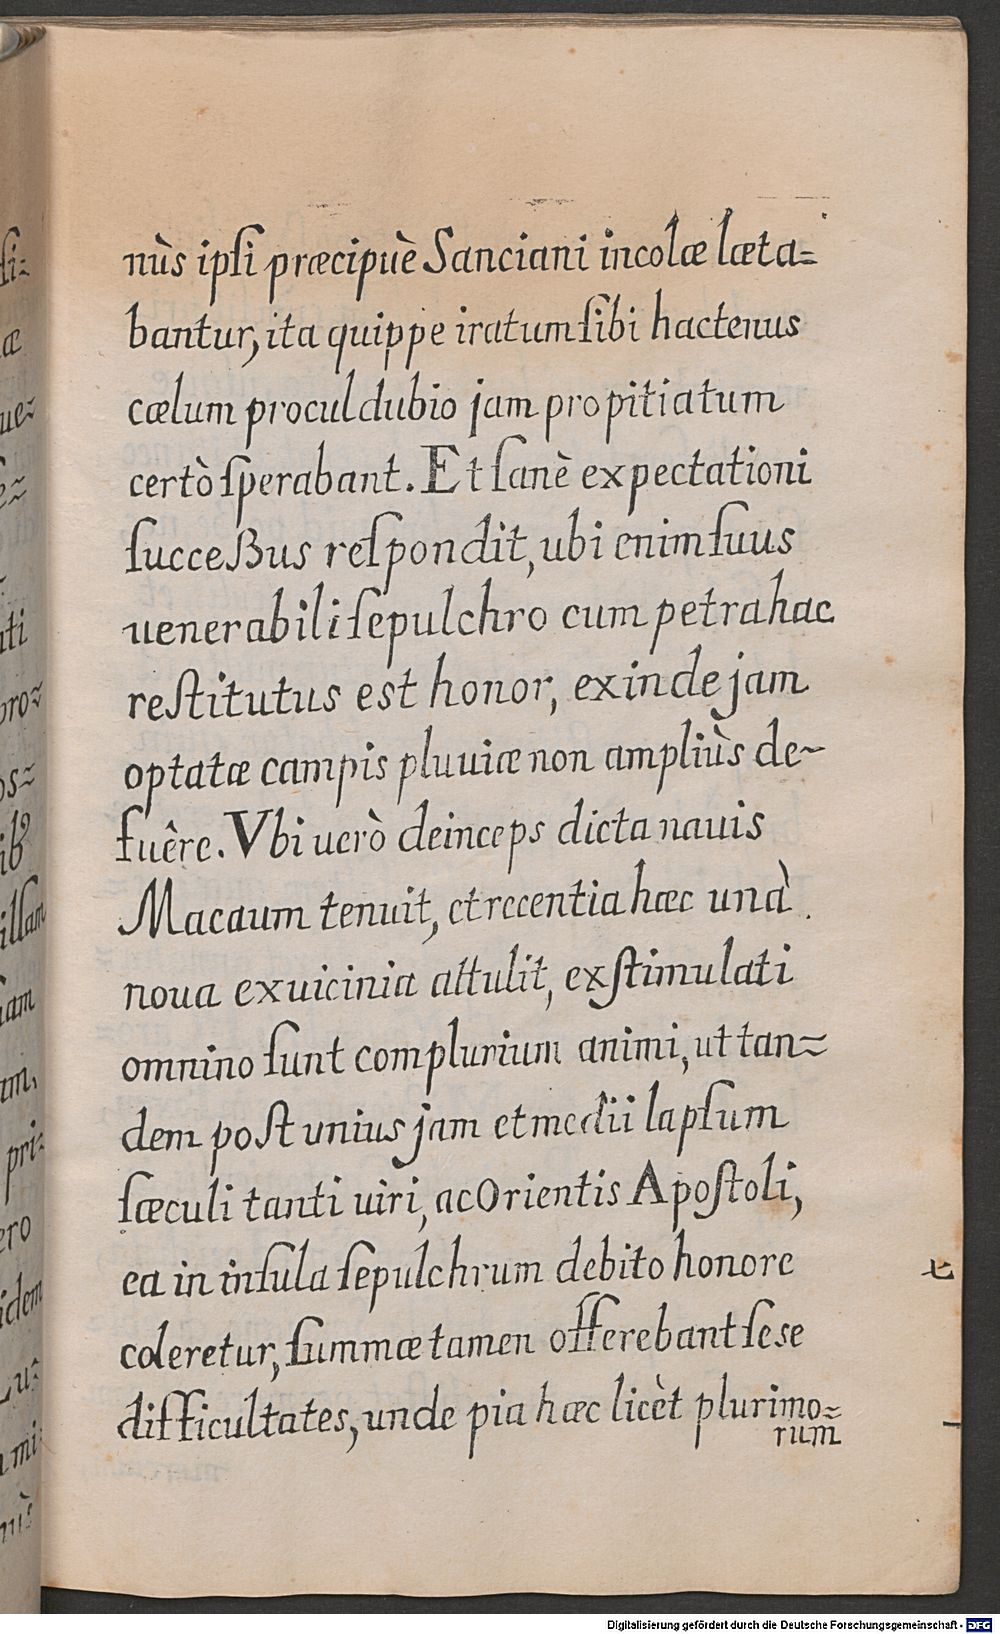 nùs ipſi præcipuè Sanciani incolæ læta=
bantur, ita quippe iratum ſibi hactenus
cælum procul dubio jam propitiatum
certò ſperabant. Et ſanè expectationi
ſucceßus reſpondit, ubi enim ſuus
uenerabili ſepulchro cum petra hac
reſtitutus est honor, exinde jam
optatæ campis pluuiæ non ampliùs de~
fuêre. Vbi uerò deinceps dicta nauis
Macaum tenuit, et recentia hæc unà
noua ex uicinia attulit, exſtimulati
omnino ſunt complurium animi, ut tan=
dem poſt unius jam et medii lapſum
ſæculi tanti uiri, ac Orientis Apoſtoli,
ea in inſula ſepulchrum debito honore
coleretur, ſummæ tamen offerebant ſese
difficultates, unde pia hæc licèt plurimo=
rum
Digitalisierung gefördert durch die Deutsche Forschungsgemeinschaft - DFG